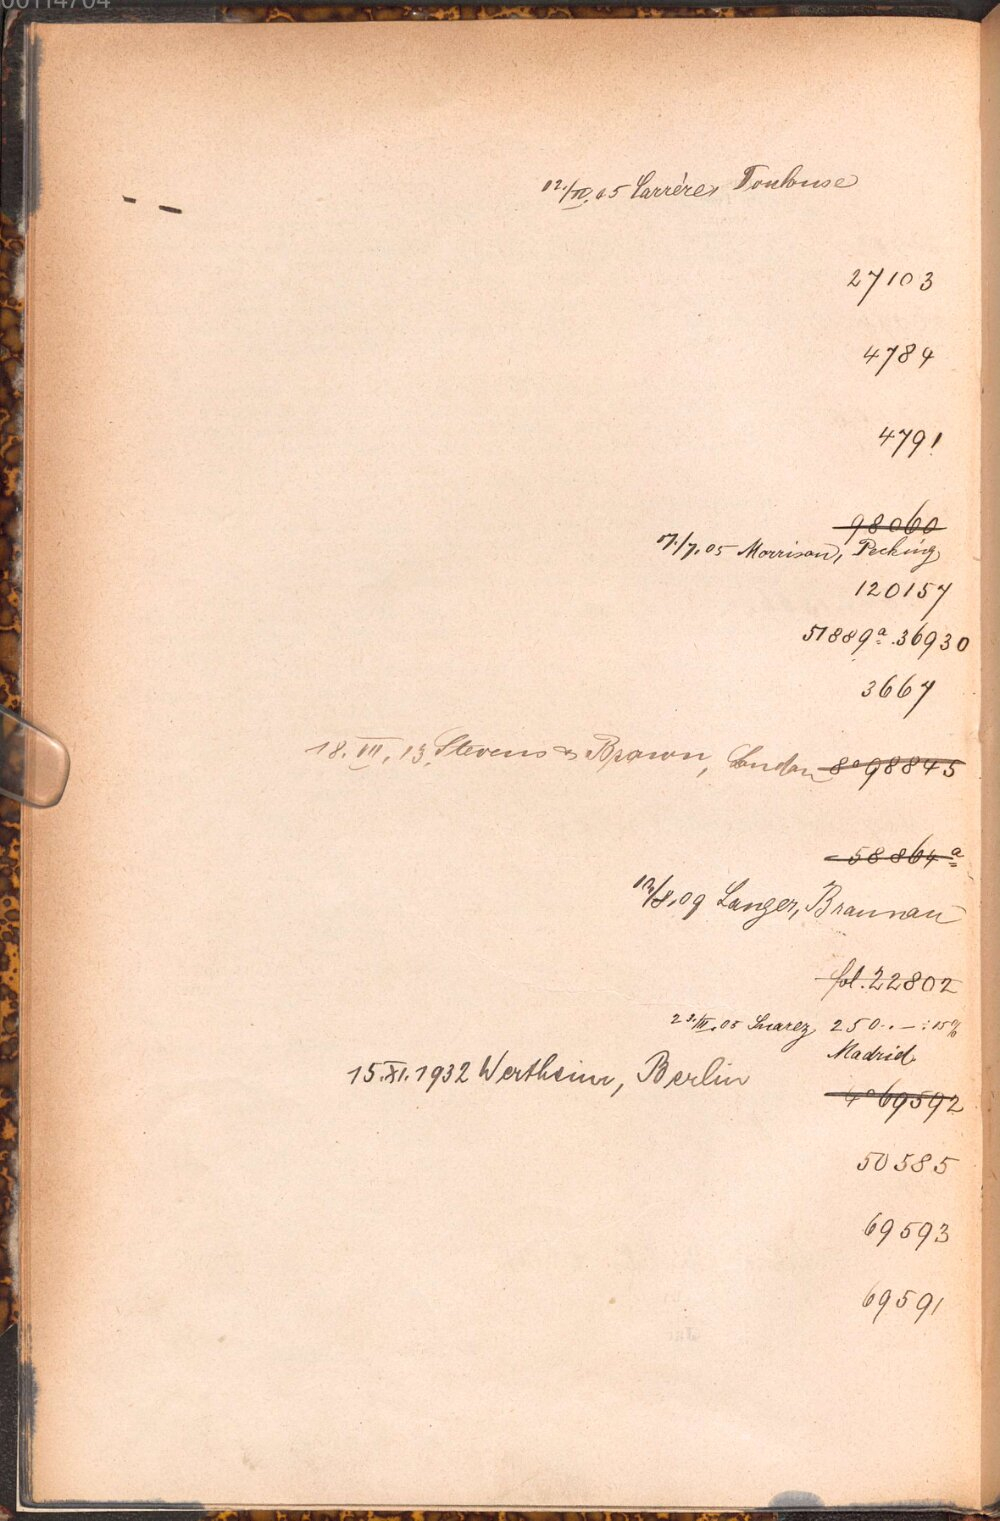 00114704
12./IV.05 Carrére, Toulouse
27103
4784
4791
98060
17./7.05 Morrison, Pecking
120157
51889a. 36930
3667
18. VII. 13. Stevens & Brown, London 8° 98845
58864a
12/8.09 Langer, Braunau
fol. 22802
23./III.05 Suarez 250.- ÷ 15%
Madrid
15.XI.1932 Wertheim, Berlin
4° 69592
50585
69593
69591